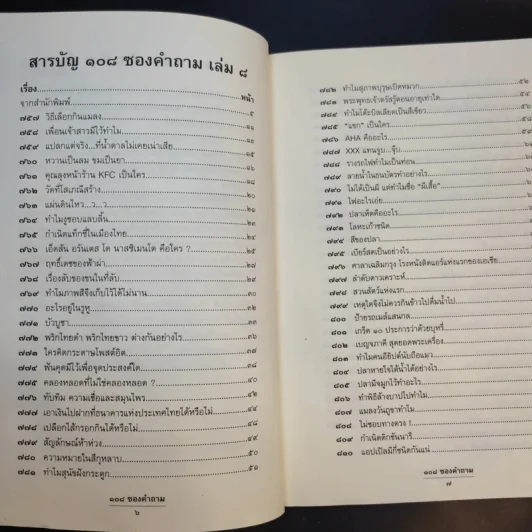 สารบัญ ๑๐๘ ซองคำถาม เล่ม ๘
เรื่อง หน้า
จากสำนักพิมพ์ ๕
๗๕๗ วิธีเลือกกินแมลง ๑๑
๗๕๘ เพื่อนเจ้าสาวมีไว้ทำไม ๑๑
๗๕๙ แปลกแต่จริง...ที่น้ำตาลไม่เคยเน่าเสีย ๑๕
๗๖๐ หวานเป็นลม ขมเป็นยา ๑๔
๗๖๑ คุณลุงหน้าร้าน KFC เป็นใคร ๑๘
๗๖๒ วัดที่โสเภณีสร้าง ๒๐
๗๖๓ แผ่นดินไหว...ว...ว ๒๑
๗๖๔ ทำไมงูชอบแลบลิ้น ๒๓
๗๖๕ กำเนิดแท็กซี่ในเมืองไทย ๒๔
๗๖๖ เอ็คสัน อรันเตส โด นาสซิเมนโต คือใคร ? ๒๕
๗๖๗ ฤทธิ์เดชของฟ้าผ่า ๒๗
๗๖๘ เรื่องลับของชนในที่ลับ ๒๘
๗๖๙ ทำไมภาพสีจึงเก็บไว้ได้ไม่นาน ๓๐
๗๗๐ อะไรอยู่ในรูหู ๓๑
๗๗๑ บัวบูชา ๓๓
๗๗๒ พริกไทยดำ พริกไทยขาว ต่างกันอย่างไร ๓๕
๗๗๓ ใครคิดกระดาษโพสต์อิต ๓๗
๗๗๔ ฟันคุดมีไว้เพื่อจุดประสงค์ใด ๓๘
๗๗๕ คลองหลอดที่ไม่ใช่คลองหลอด ? ๔๐
๗๗๖ ทับทิม ความเชื่อและสมุนไพร ๔๒
๗๗๗ เอาเงินไปฝากที่ธนาคารแห่งประเทศไทยได้หรือไม่ ๔๔
๗๗๘ เปลือกไส้กรอกกินได้หรือไม่ ๔๗
๗๗๙ สัญลักษณ์ห้าห่วง ๔๙
๗๘๐ ความหมายในสีกุหลาบ ๕๐
๗๘๑ ทำไมสุนัขฝังกระดูก ๕๑
๑๐๘ ซองคำถาม
๖
๗๘๒ ทำไมสุภาพบุรุษเปิดหมวก ๕๒
๗๘๓ พระพุทธเจ้าตรัสรู้ตอนอายุเท่าใด ๕๔
๗๘๔ ทำไมโต๊ะบิลเลียดเป็นสีเขียว
๗๘๕ "แขก" เป็นใคร
๗๘๖ AHA คืออะไร
๗๘๗ XXX แทนจูบ...จุ๊บ
๗๘๘ รางรถไฟทำไมเป็นท่อน
๗๘๙ ลายน้ำในธนบัตรทำอย่างไร
๗๙๐ ไม่ได้เป็นผี แต่ทำไมชื่อ "ผีเสื้อ"
๗๙๑ ไฟอะไรเอ่ย
๗๙๒ ปลาเห็ดคืออะไร
๗๙๓ โลหะเก้าชนิด
๗๙๔ สีของปลา
๗๙๕ เบียร์สดเป็นอย่างไร
๗๙๖ ศาลาเฉลิมกรุง โรงหนังติดแอร์แห่งแรกของเอเชีย
๗๙๗ ลำดับดาวเคราะห์
๗๙๘ สวนสัตว์แห่งแรก
๗๙๙ เหตุใดจึงไม่ควรกินข้าวไปดื่มน้ำไป
๘๐๐ ป้ายรถเมล์แสนกล
๘๐๑ เกร็ด ๑๐ ประการว่าด้วยบุหรี่
๘๐๒ เบญจภาคี สุดยอดพระเครื่อง
๘๐๓ ทำไมคนอียิปต์นับถือแมว
๘๐๔ ปลาหายใจใต้น้ำได้อย่างไร
๘๐๕ ปลามีจมูกไว้ทำอะไร
๘๐๖ ทำพิธีล้างบาปไปทำไม
๘๐๗ แมลงวันถูขาทำไม
๘๐๘ ไม่ชอบทางตรง !
๘๐๙ กำเนิดติกชันนารี
๘๑๐ แอปเปิลมีกี่ชนิดกันแน่
๑๐๘ ซองคำถาม
๗